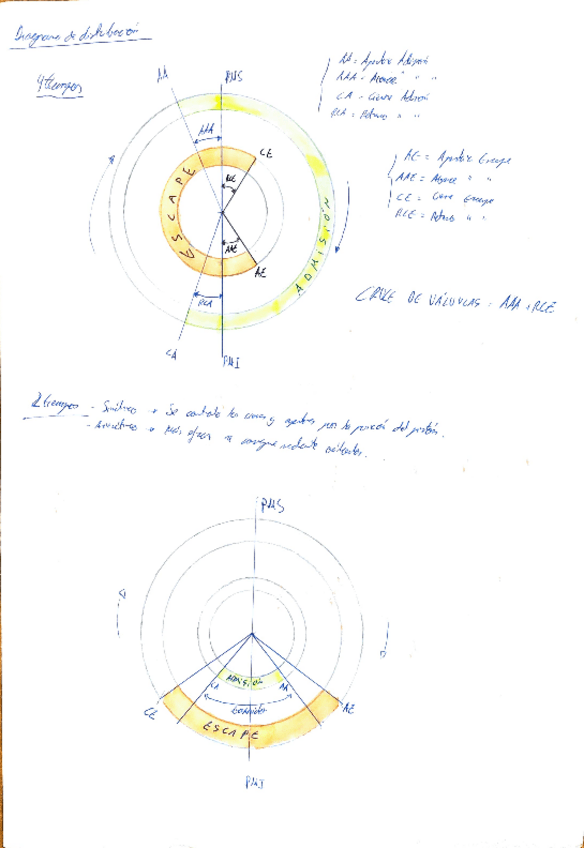 Diagrama de distribución
4 tiempos
AA = Apertura Admisión
AAA = Avance " "
CA = Cierre Admisión
RCA = Retraso " "
AE = Apertura Escape
AAE = Avance " "
CE = Cierre Escape
RCE = Retraso " "
AA
PMS
AAA
CE
RCE
ESCAPE
ADMISIÓN
AAE
AE
RCA
CA
PMI
CRUCE DE VÁLVULAS = AAA + RCE
2 tiempos - Simétrico → Se controla los cierres y aperturas por la posición del pistón.
- Asimétrico → Más eficaz se consigue mediante
PMS
ADMISIÓN
CA
AA
CE
AE
ESCAPE
PMI